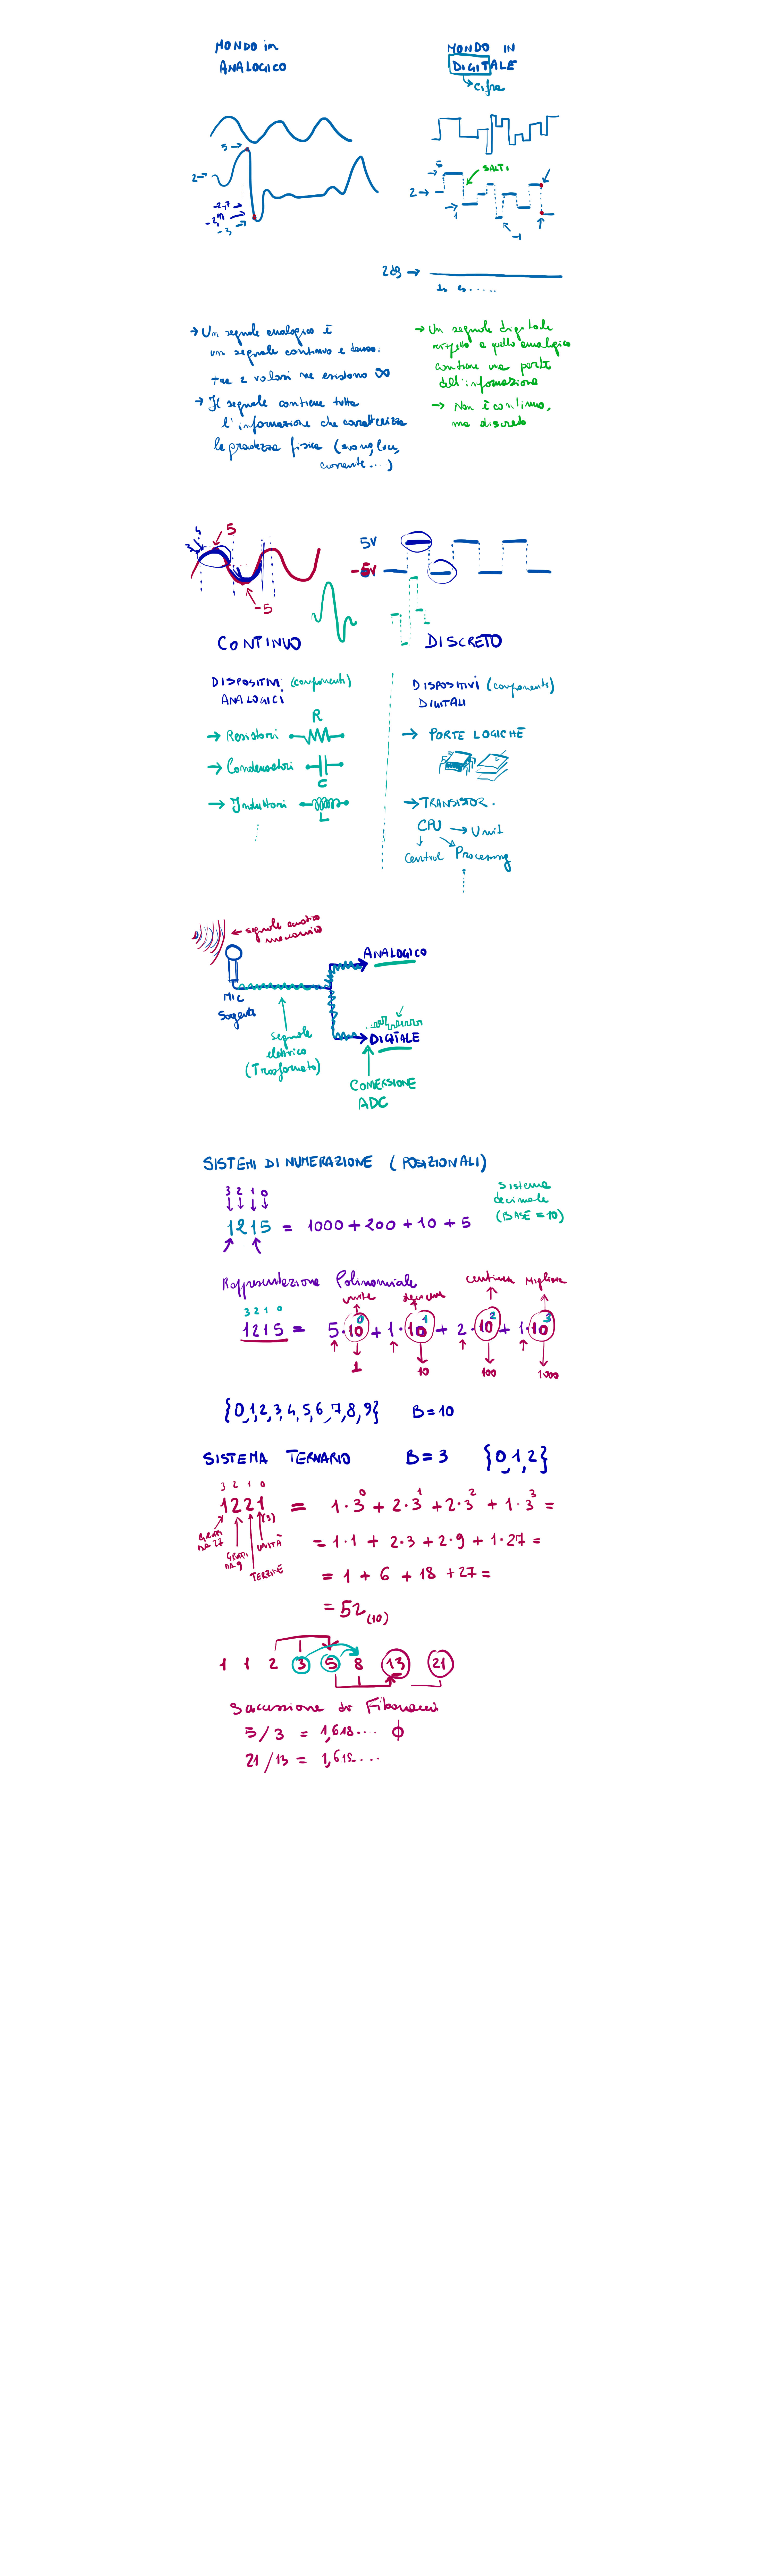 MONDO in
ANALOGICO
MONDO IN
DIGITALE
cifre
5
2
-2,7
-2,9
-3
5
SALTI
2
1
-1
2dg
1s 2s.....
→ Un segnale analogico è
un segnale continuo e denso.
tra 2 valori ne esistono ∞
→ Il segnale contiene tutta
l'informazione che caratterizza
la grandezza fisica (suono, luce,
corrente...)
→ Un segnale digitale
rispetto a quello analogico
contiene una parte
dell'informazione
→ Non è continuo,
ma discreto
5
-5
5V
-5V
CONTINUO
DISCRETO
DISPOSITIVI (componenti)
ANALOGICI
→ Resistori R
→ Condensatori C
→ Induttori L
DISPOSITIVI (componenti)
DIGITALI
→ PORTE LOGICHE
→ TRANSISTOR.
CPU → Unit
Central Processing
← segnale acustico
meccanico
MIC
Sorgente
ANALOGICO
DIGITALE
segnale
elettrico
(Trasformato)
CONVERSIONE
ADC
SISTEMI DI NUMERAZIONE (POSIZIONALI)
3 2 1 0
1215 = 1000 + 200 + 10 + 5
Sistema
decimale
(BASE = 10)
Rappresentazione Polinomiale
unità decine centinaia Migliaia
3 2 1 0
1215 = 5·10⁰ + 1·10¹ + 2·10² + 1·10³
1 10 100 1000
{0,1,2,3,4,5,6,7,8,9} B=10
SISTEMA TERNARIO B=3 {0,1,2}
3 2 1 0
1221(3) = 1·3⁰ + 2·3¹ + 2·3² + 1·3³ =
= 1·1 + 2·3 + 2·9 + 1·27 =
DA 27
DA 9
TERZINE
UNITÀ
= 1 + 6 + 18 + 27 =
= 52(10)
1 1 2 3 5 8 13 21
Successione di Fibonacci
5/3 = 1,618.... ϕ
21/13 = 1,618...